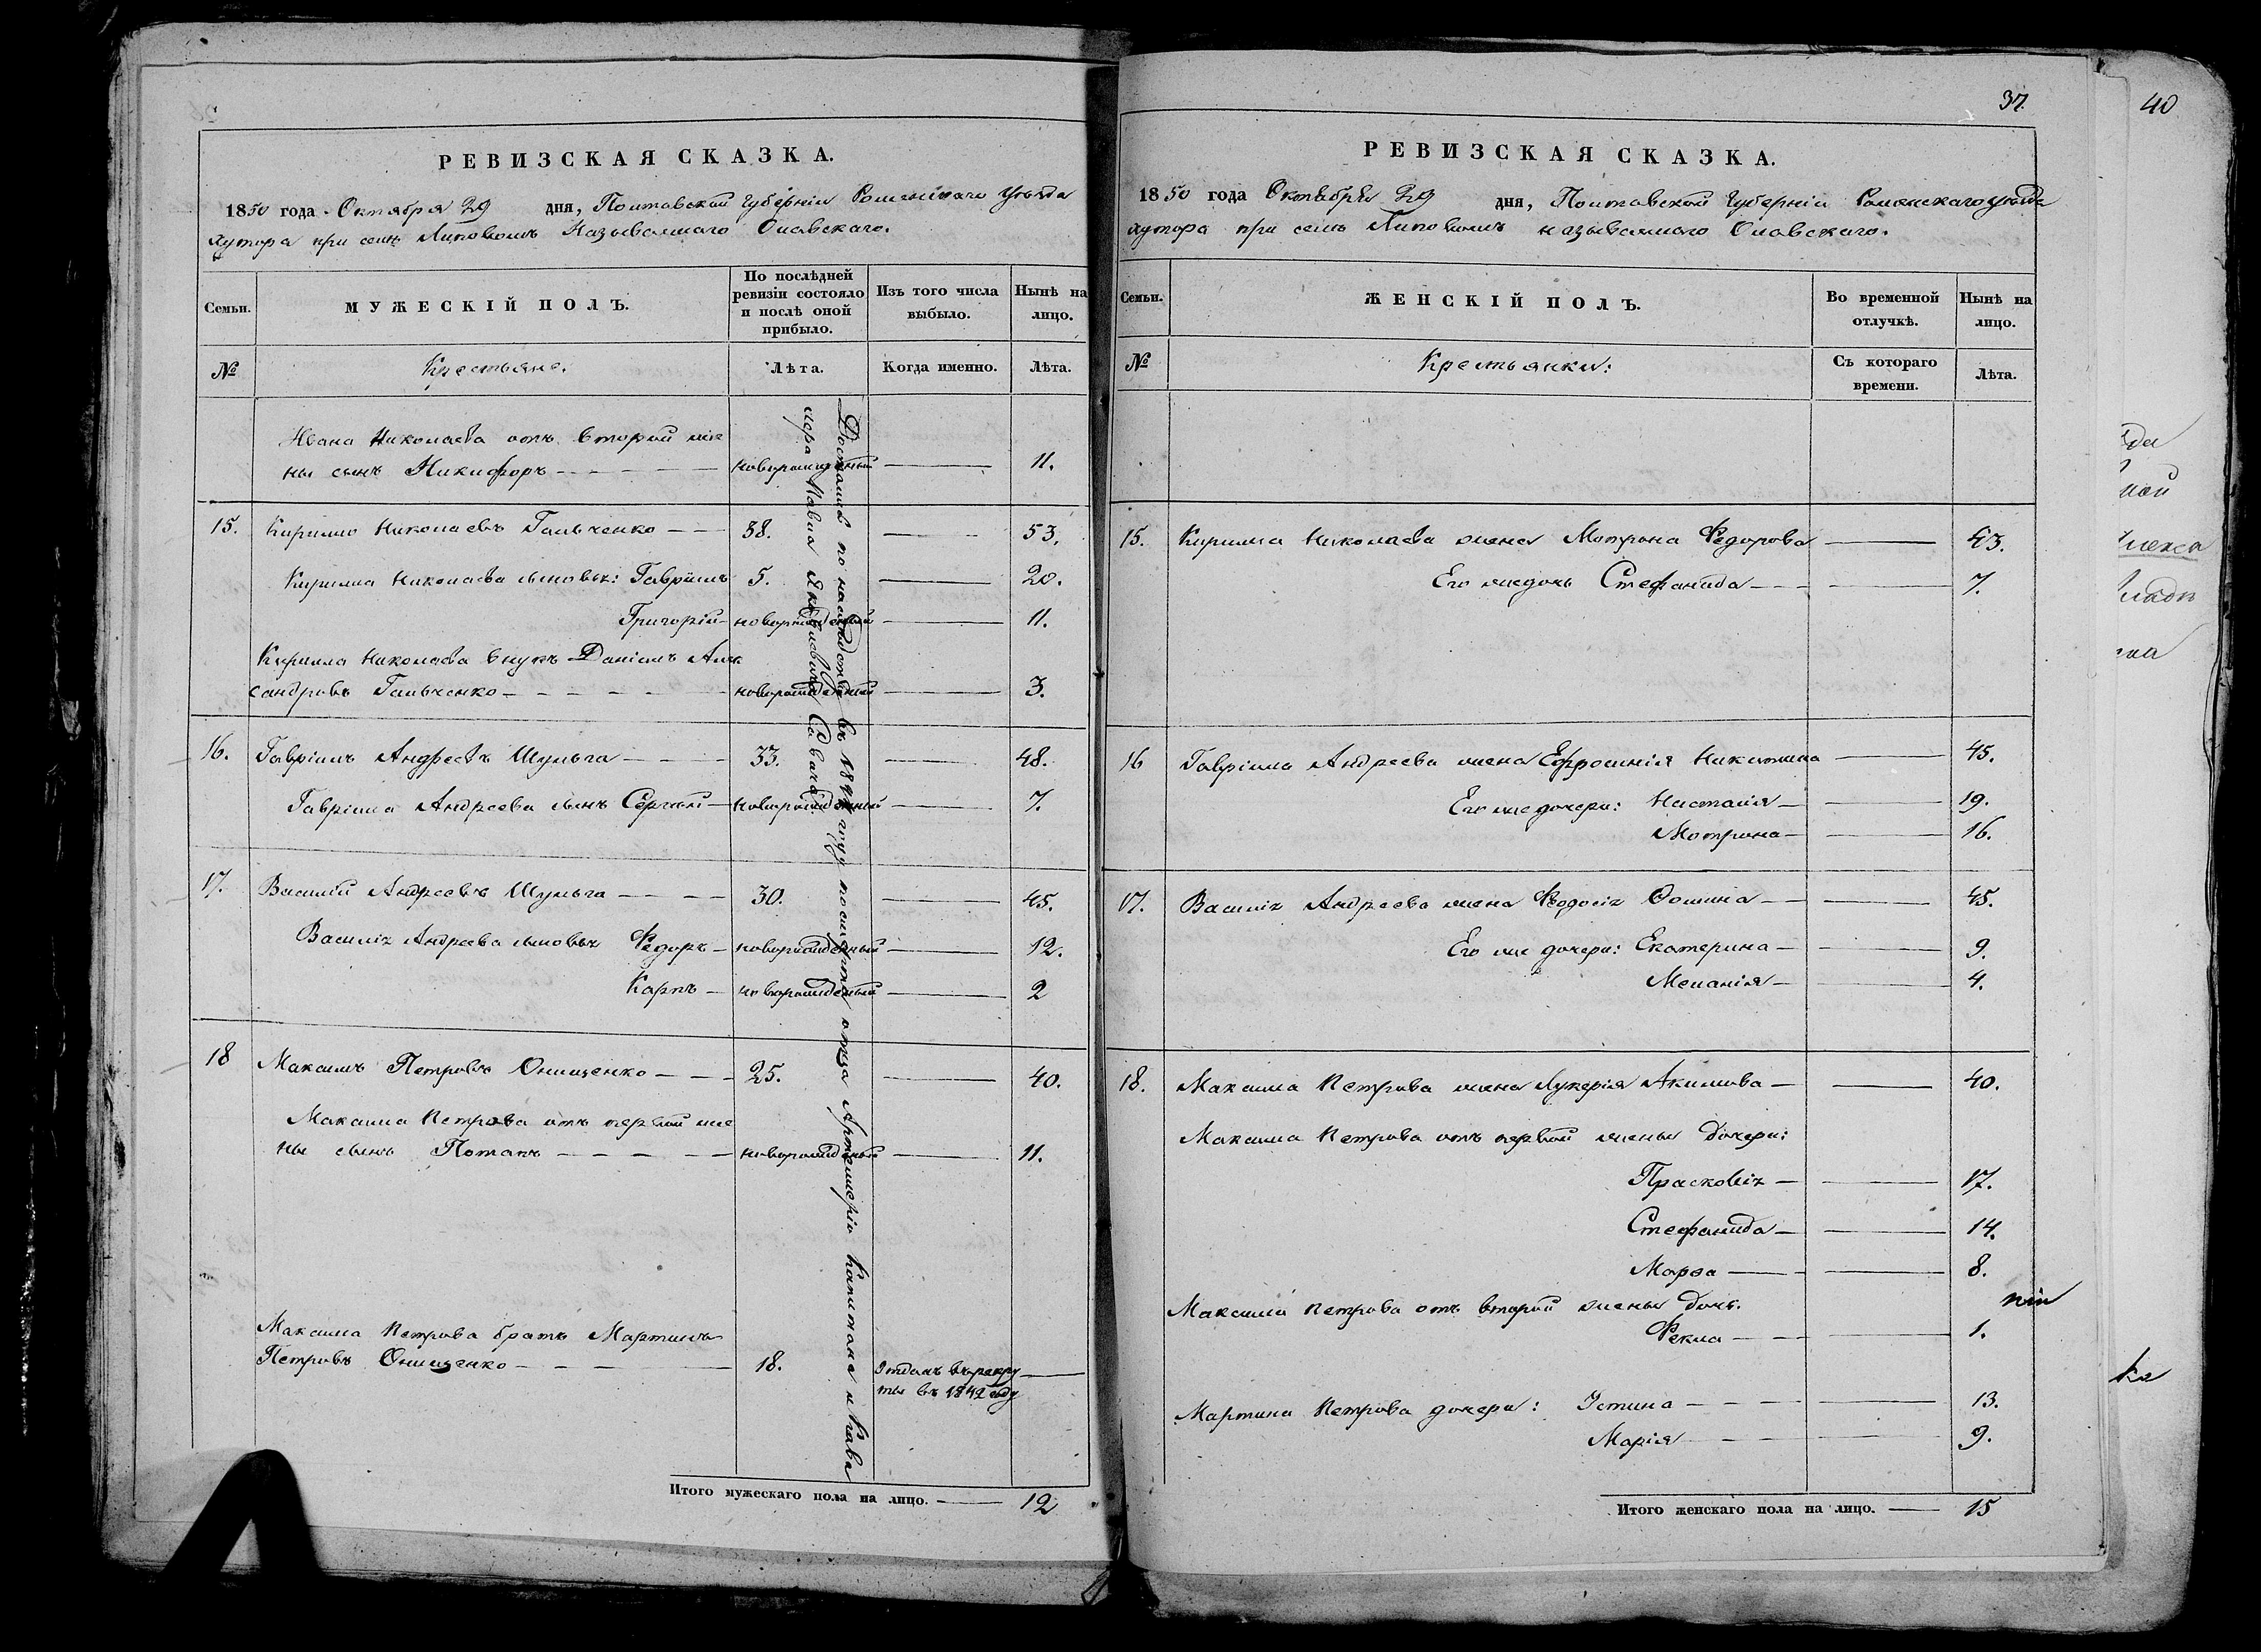 РЕВИЗСКАЯ СКАЗКА.
1850 года Октября 29 дня, Полтавской Губерніи Роменскаго Уѣзда
хутора при селѣ Липовомъ Называемаго Славскаго.
Семьи.
МУЖЕСКІЙ ПОЛЪ.
По послѣдней ревизіи состояло и послѣ оной прибыло.
Изъ того числа выбыло.
Нынѣ на лицо.
№
Крестьяне.
Лѣта.
Когда именно.
Лѣта.
Ивана Николаева отъ второй же
ны сынъ Никифоръ — новорожденный — 11.
15. Кирилло Николаевъ Гальченко — 38. — 53.
Кирилла Николаева сыновья: Гавріилъ 5. — 20.
Григорій — новорожденный — 11.
Кирилла Николаева внукъ Даніилъ Алек
сандровъ Гальченко — новорожденный — 3.
16. Гавріилъ Андреевъ Шульга — 33. — 48.
Гавріила Андреева сынъ Сергѣй — новорожденный — 7.
17. Василій Андреевъ Шульга — 30. — 45.
Василія Андреева сыновья Федоръ — новорожденный — 12.
Карпъ — новорожденный — 2
18 Максимъ Петровъ Онищенко — 25. — 40.
Максима Петрова отъ первой же
ны сынъ Потапъ — новорожденный — 11.
Максима Петрова братъ Мартинъ
Петровъ Онищенко — 18. Отданъ въ рекру —
ты въ 1842 году
Достались по наслѣдству въ 184 году посмерти отца Артиллеріи Капитана и Кава
лера Павла Яковлевича Савича
Итого мужескаго пола на лицо. — 12
37.
РЕВИЗСКАЯ СКАЗКА.
1850 года Октября 29 дня, Полтавской Губерніи Роменскаго уѣзда
хутора при селѣ Липовомъ называемаго Славскаго.
Семьи.
ЖЕНСКІЙ ПОЛЪ.
Во временной отлучкѣ.
Нынѣ на лицо.
№
Крестьянки:
Съ котораго времени.
Лѣта.
15. Кирилла Николаева жена Мотрона Федорова — 43.
Его же дочь Стефанида — 7.
16 Гавріила Андреева жена Ефросинія Никитина — 45.
Его же дочери: Наталія — 19.
Мотрона — 16.
17. Василія Андреева жена Феодосія Фомина — 45.
Его же дочери: Екатерина — 9.
Меланія — 4.
18. Максима Петрова жена Лукерія Акимова — 40.
Максима Петрова отъ первой жены дочери:
Прасковія — 17.
Стефанида — 14.
Марѳа — 8.
Максима Петрова отъ второй жены дочь.
Фекла — 1.
Мартина Петрова дочери: Устина — 13.
Марія — 9.
Итого женскаго пола на лицо. — 15
40